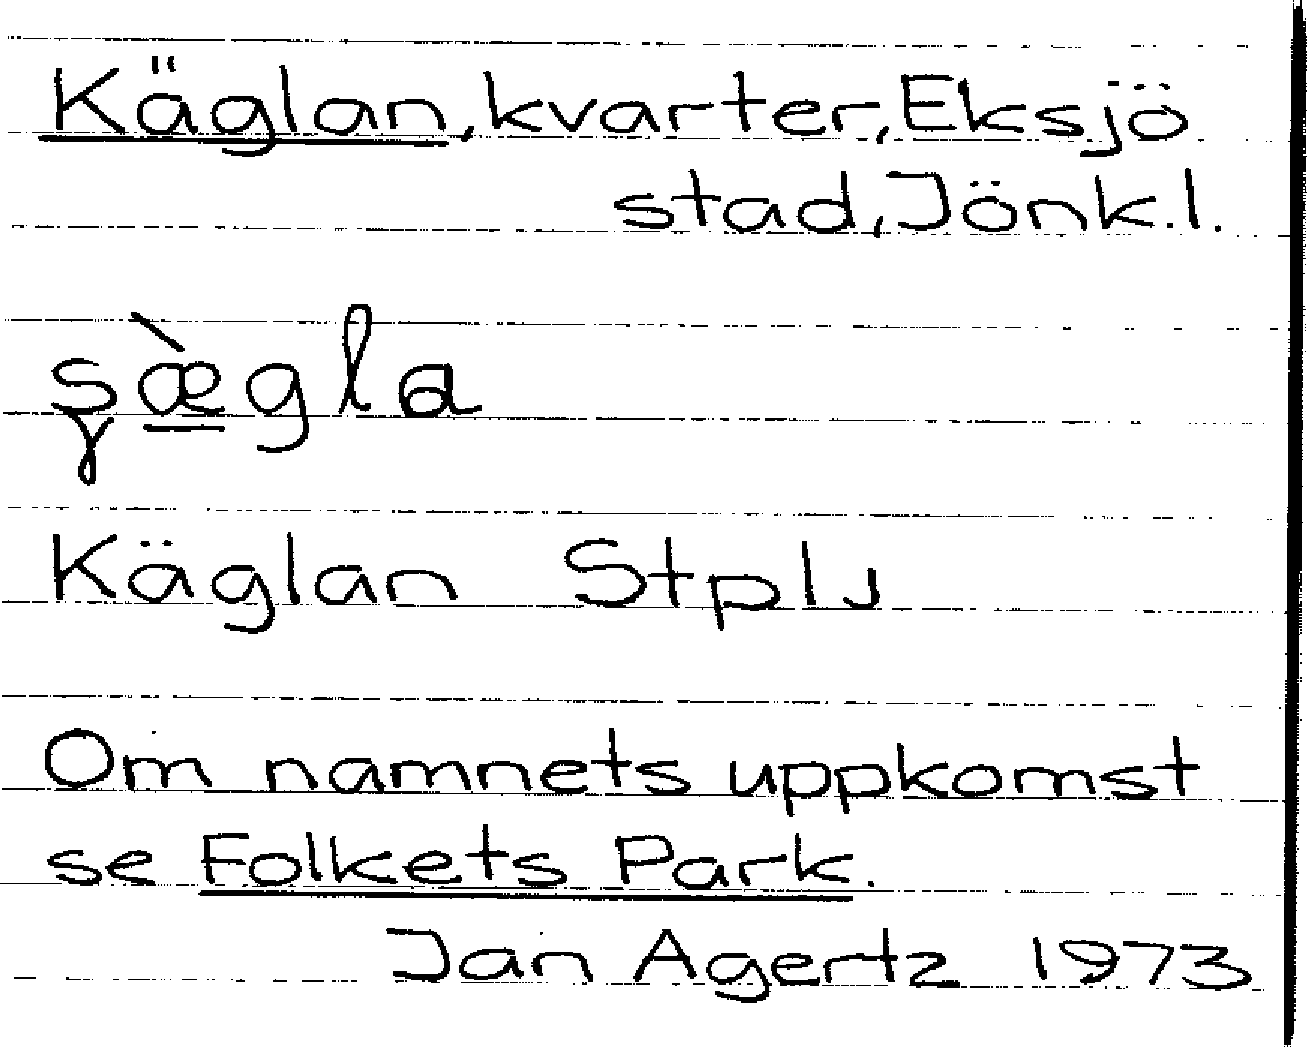 Käglan, kvarter, Eksjö
stad, Jönk.l.
ş̀æ̲gla
Käglan Stplj
Om namnets uppkomst
se Folkets Park.
Jan Agertz 1973